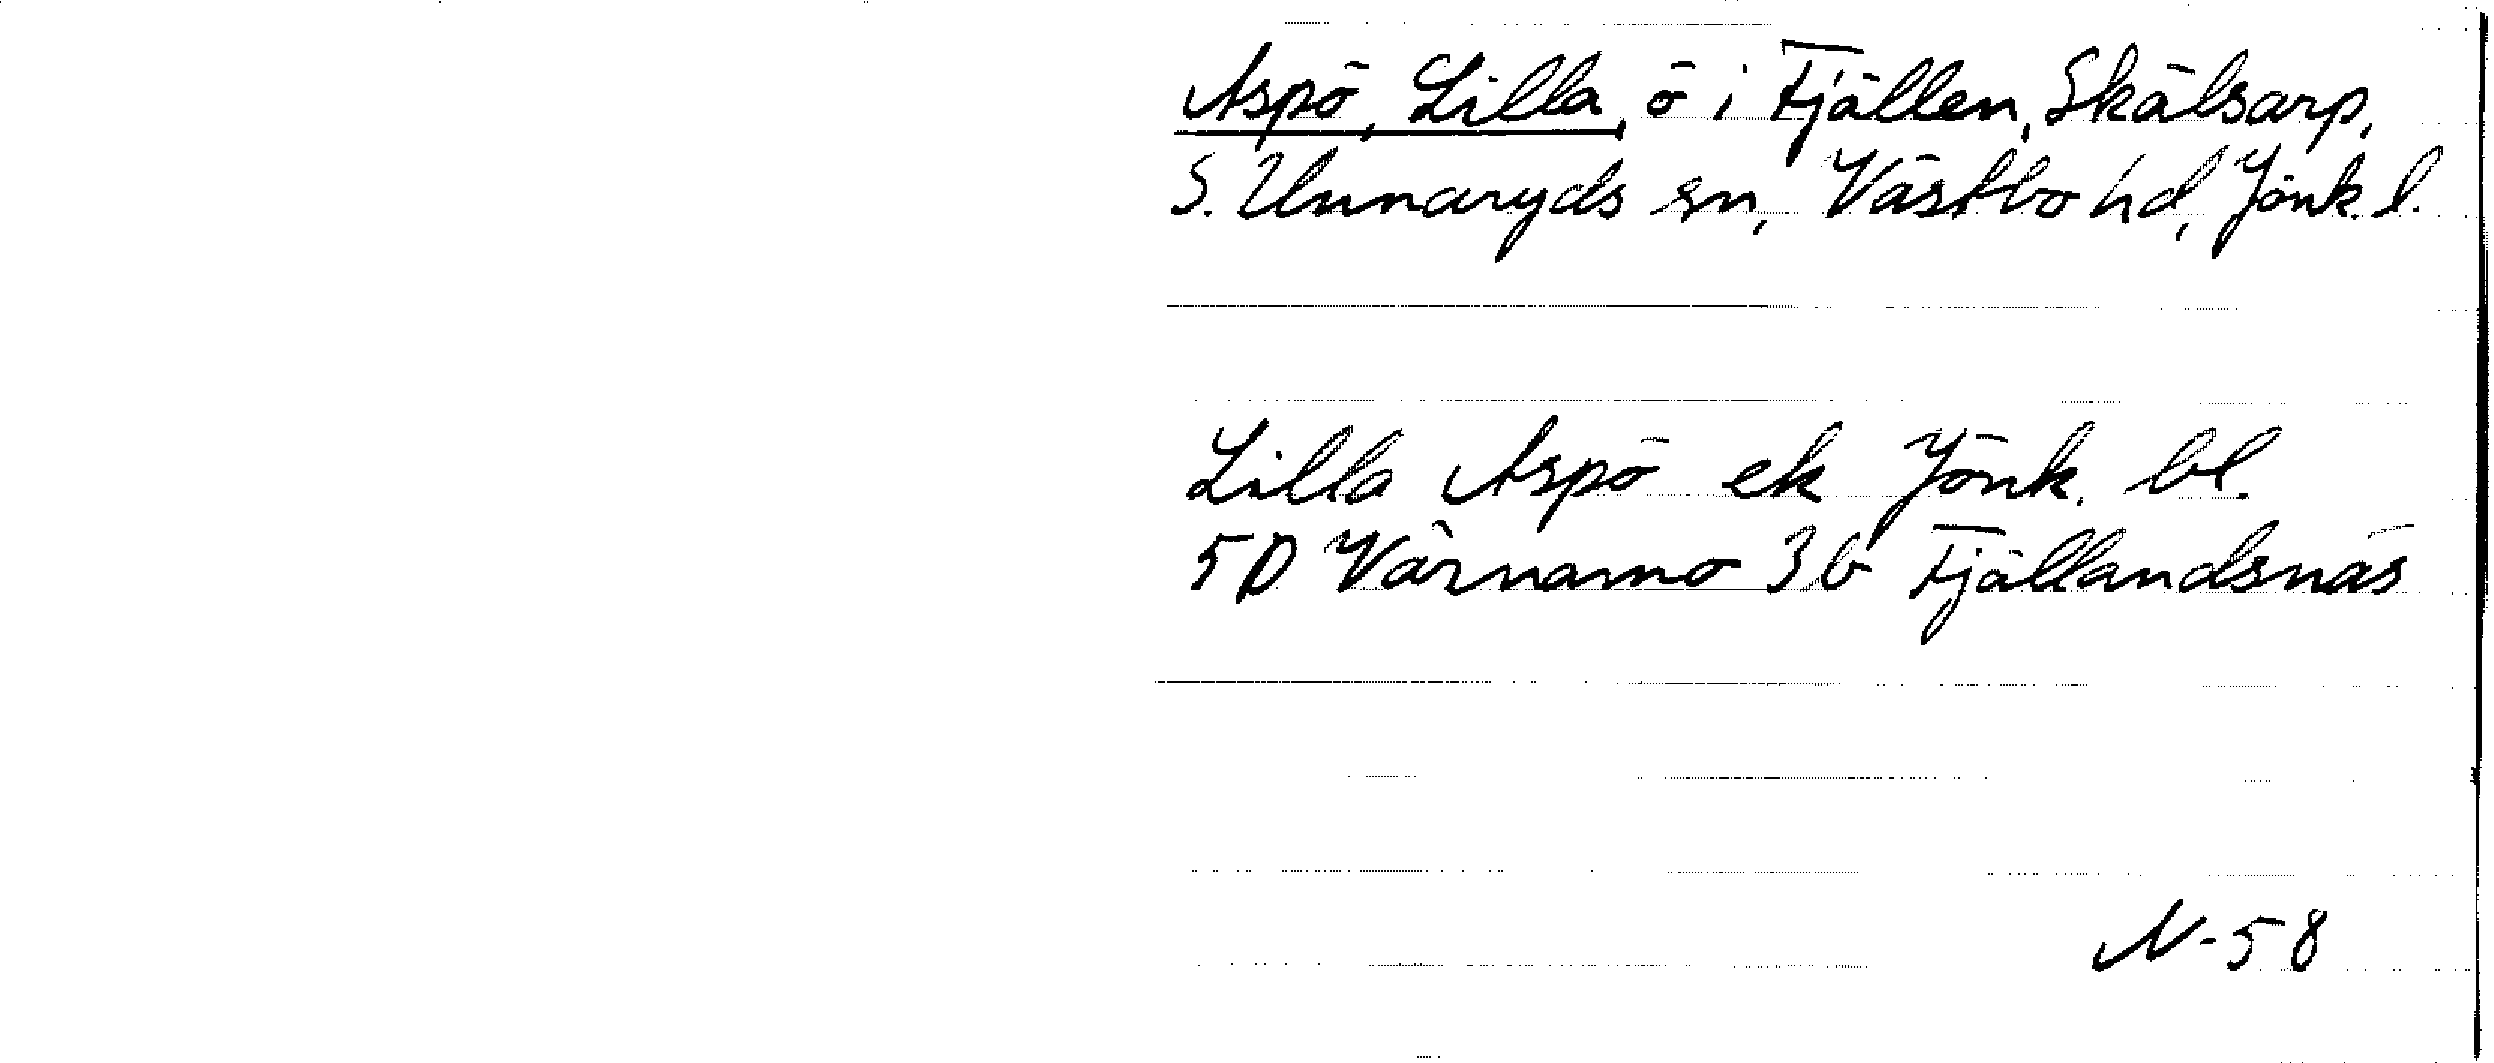 Aspö, Lilla, ö i Fjällen, Skålsarp,
S. Unnaryds sn, Västbo hd, Jönk. l.
Lilla Aspö ek Jönk. bl.
5D Värnamo 3b Fjällandsnäs
N-58